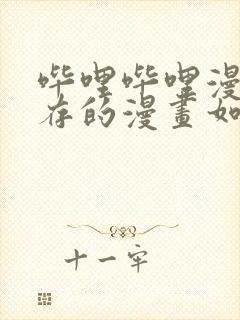 哔哩哔哩漫
存的漫畫如
十一牢